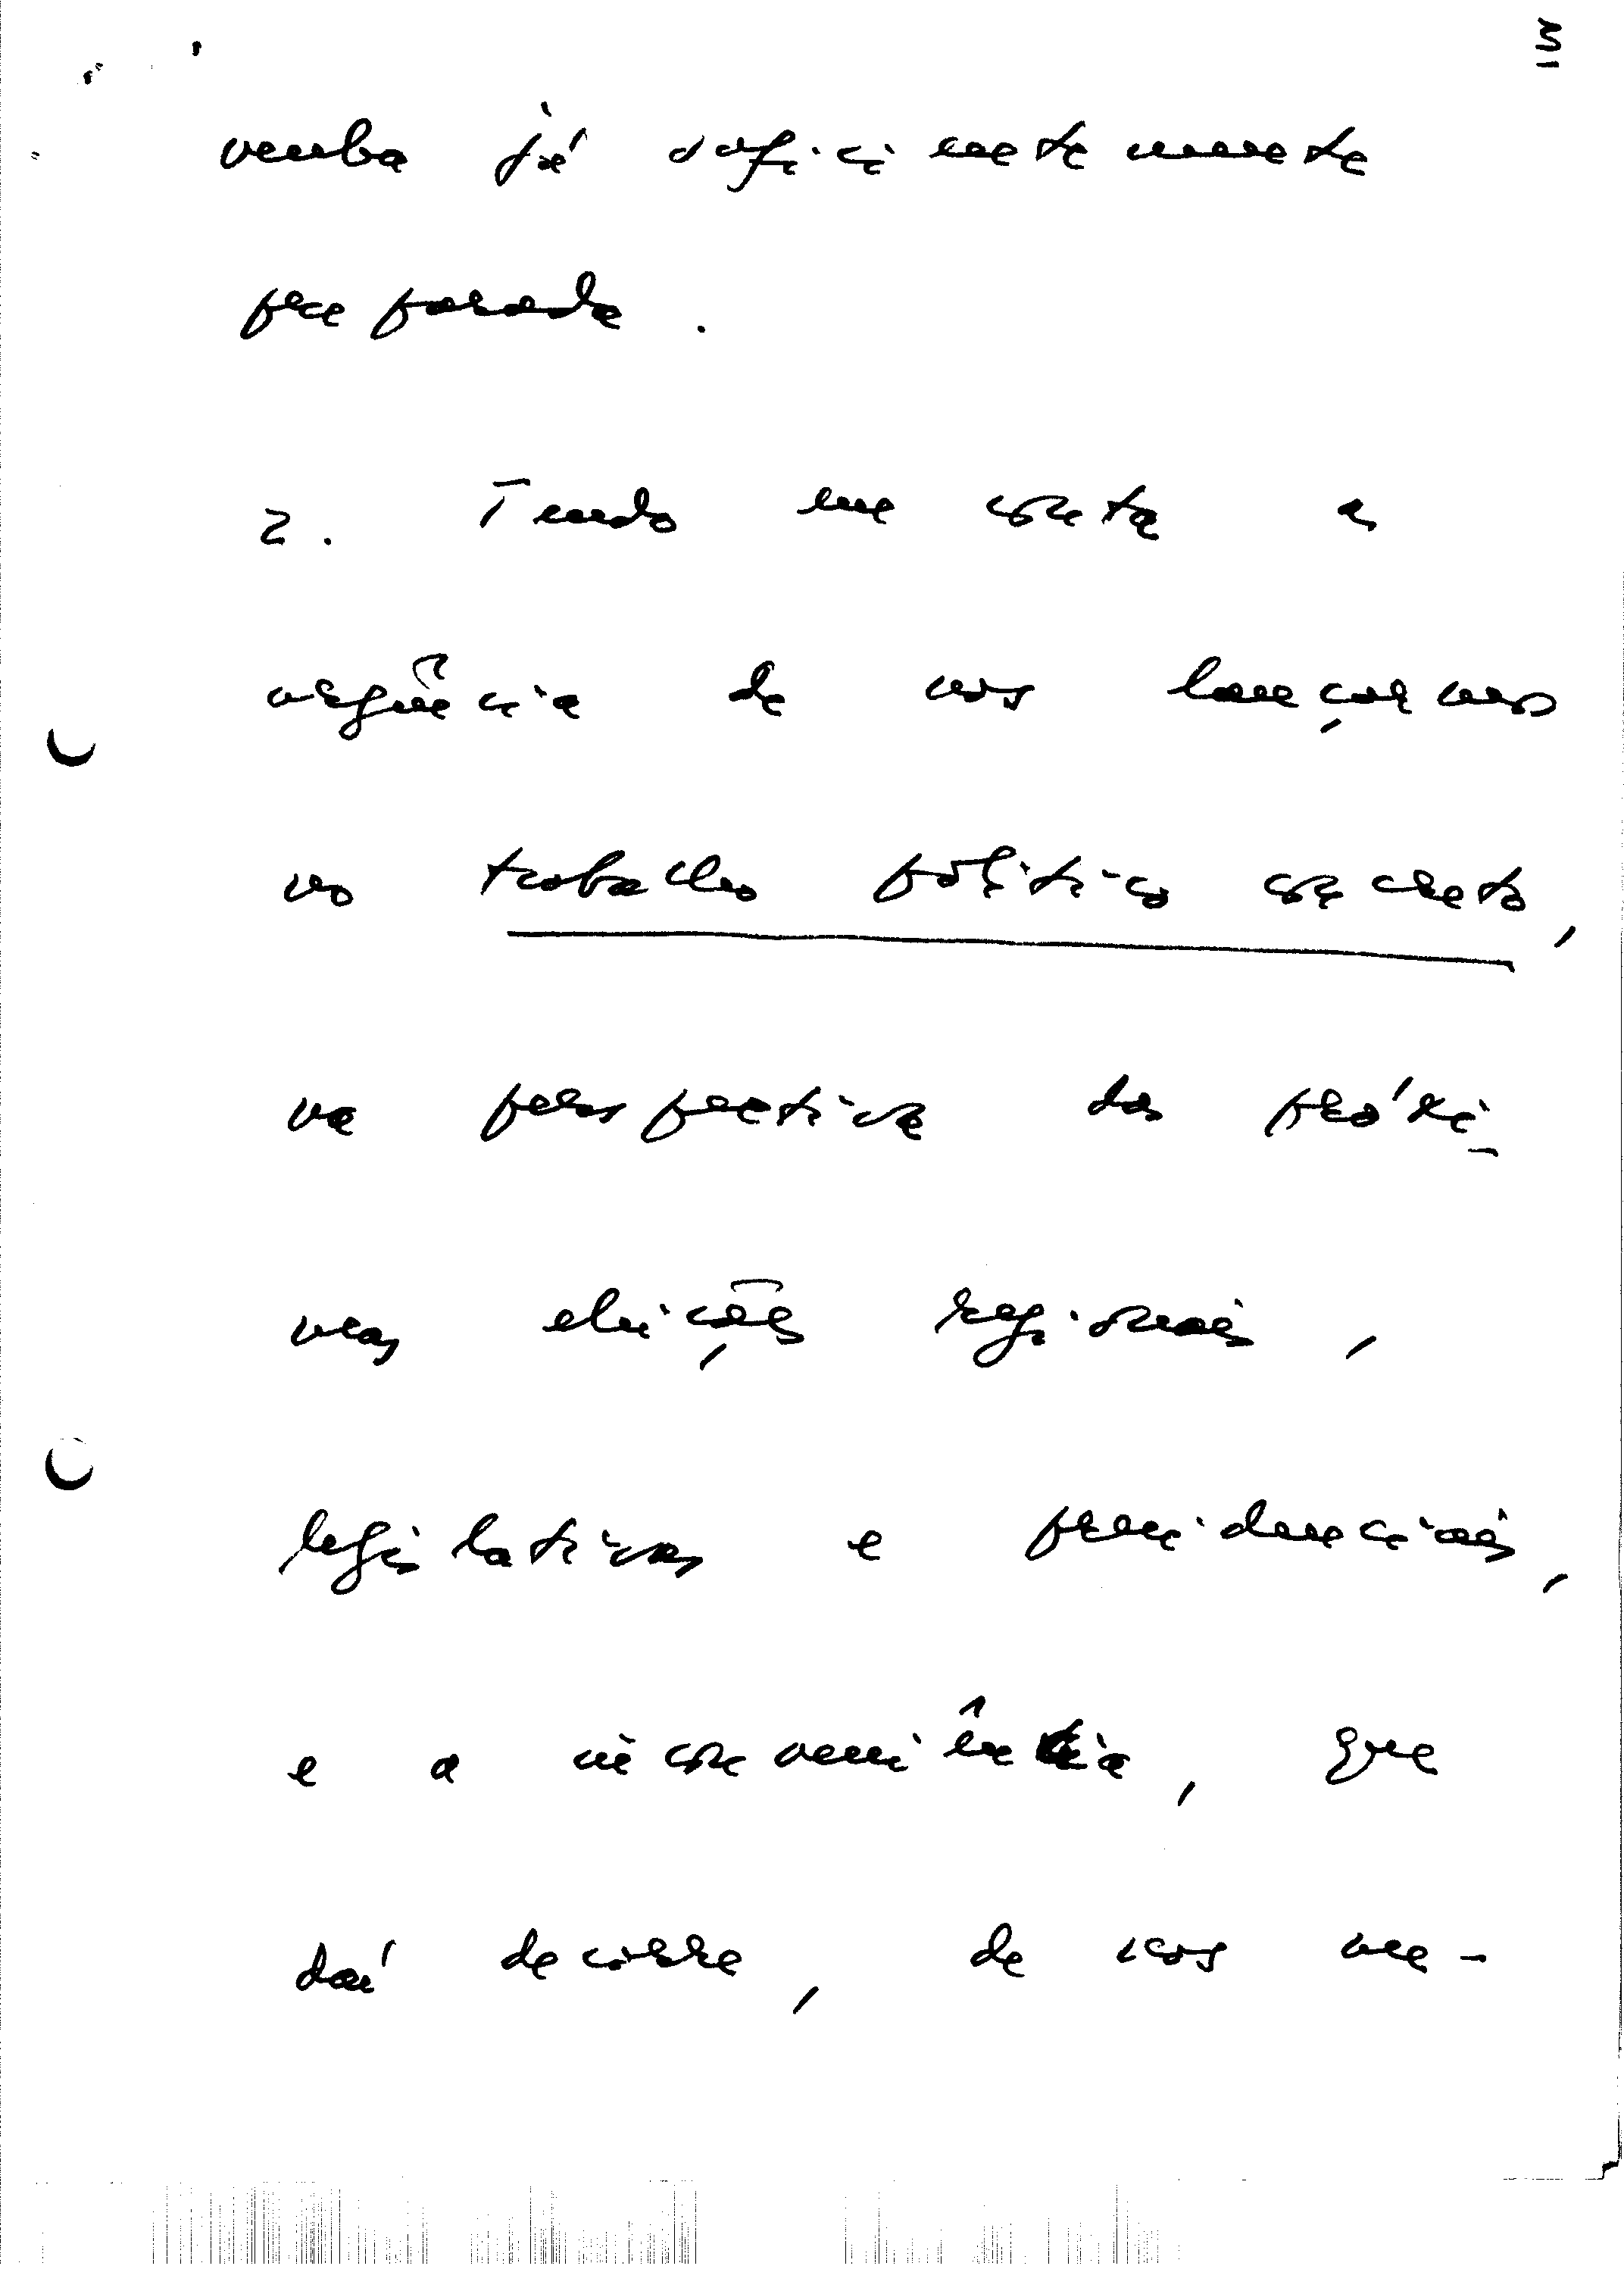 3
venha já suficientemente
preparada.
2. Tendo em conta a
urgência de nos lançarmos
no trabalho político concreto,
na perspectiva das próxi-
mas eleições regionais,
legislativas e presidenciais,
e a inconveniência, que
daí decorre, de nos me-